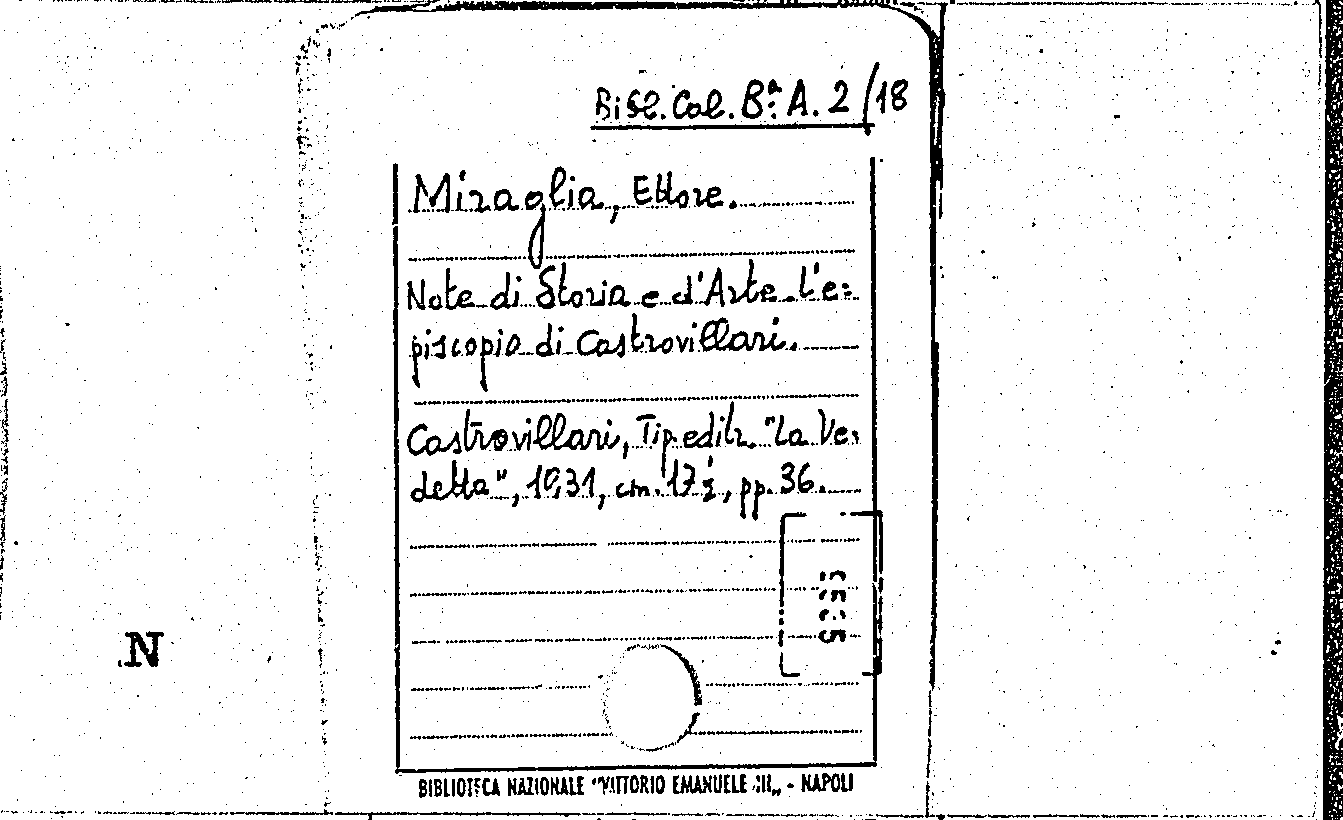 Bibl. Col. Bª. A. 2/18
Miraglia, Ettore.
Note di Storia e d'Arte. L'e=
piscopio di Castrovillari.
Castrovillari, Tip. editr. "La Ve=
detta", 1931, cm. 17½, pp. 36.
N
BIBLIOTECA NAZIONALE "VITTORIO EMANUELE III„ - NAPOLI